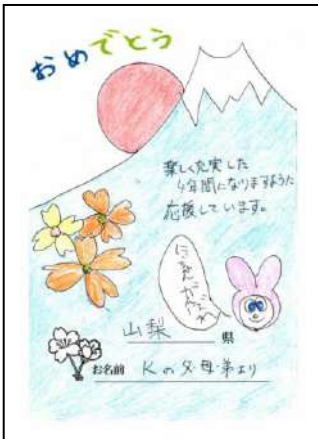 おめでとう
楽しく充実した
4年間になりますように
応援しています。
山梨 県
お名前 Kの父・母・弟より